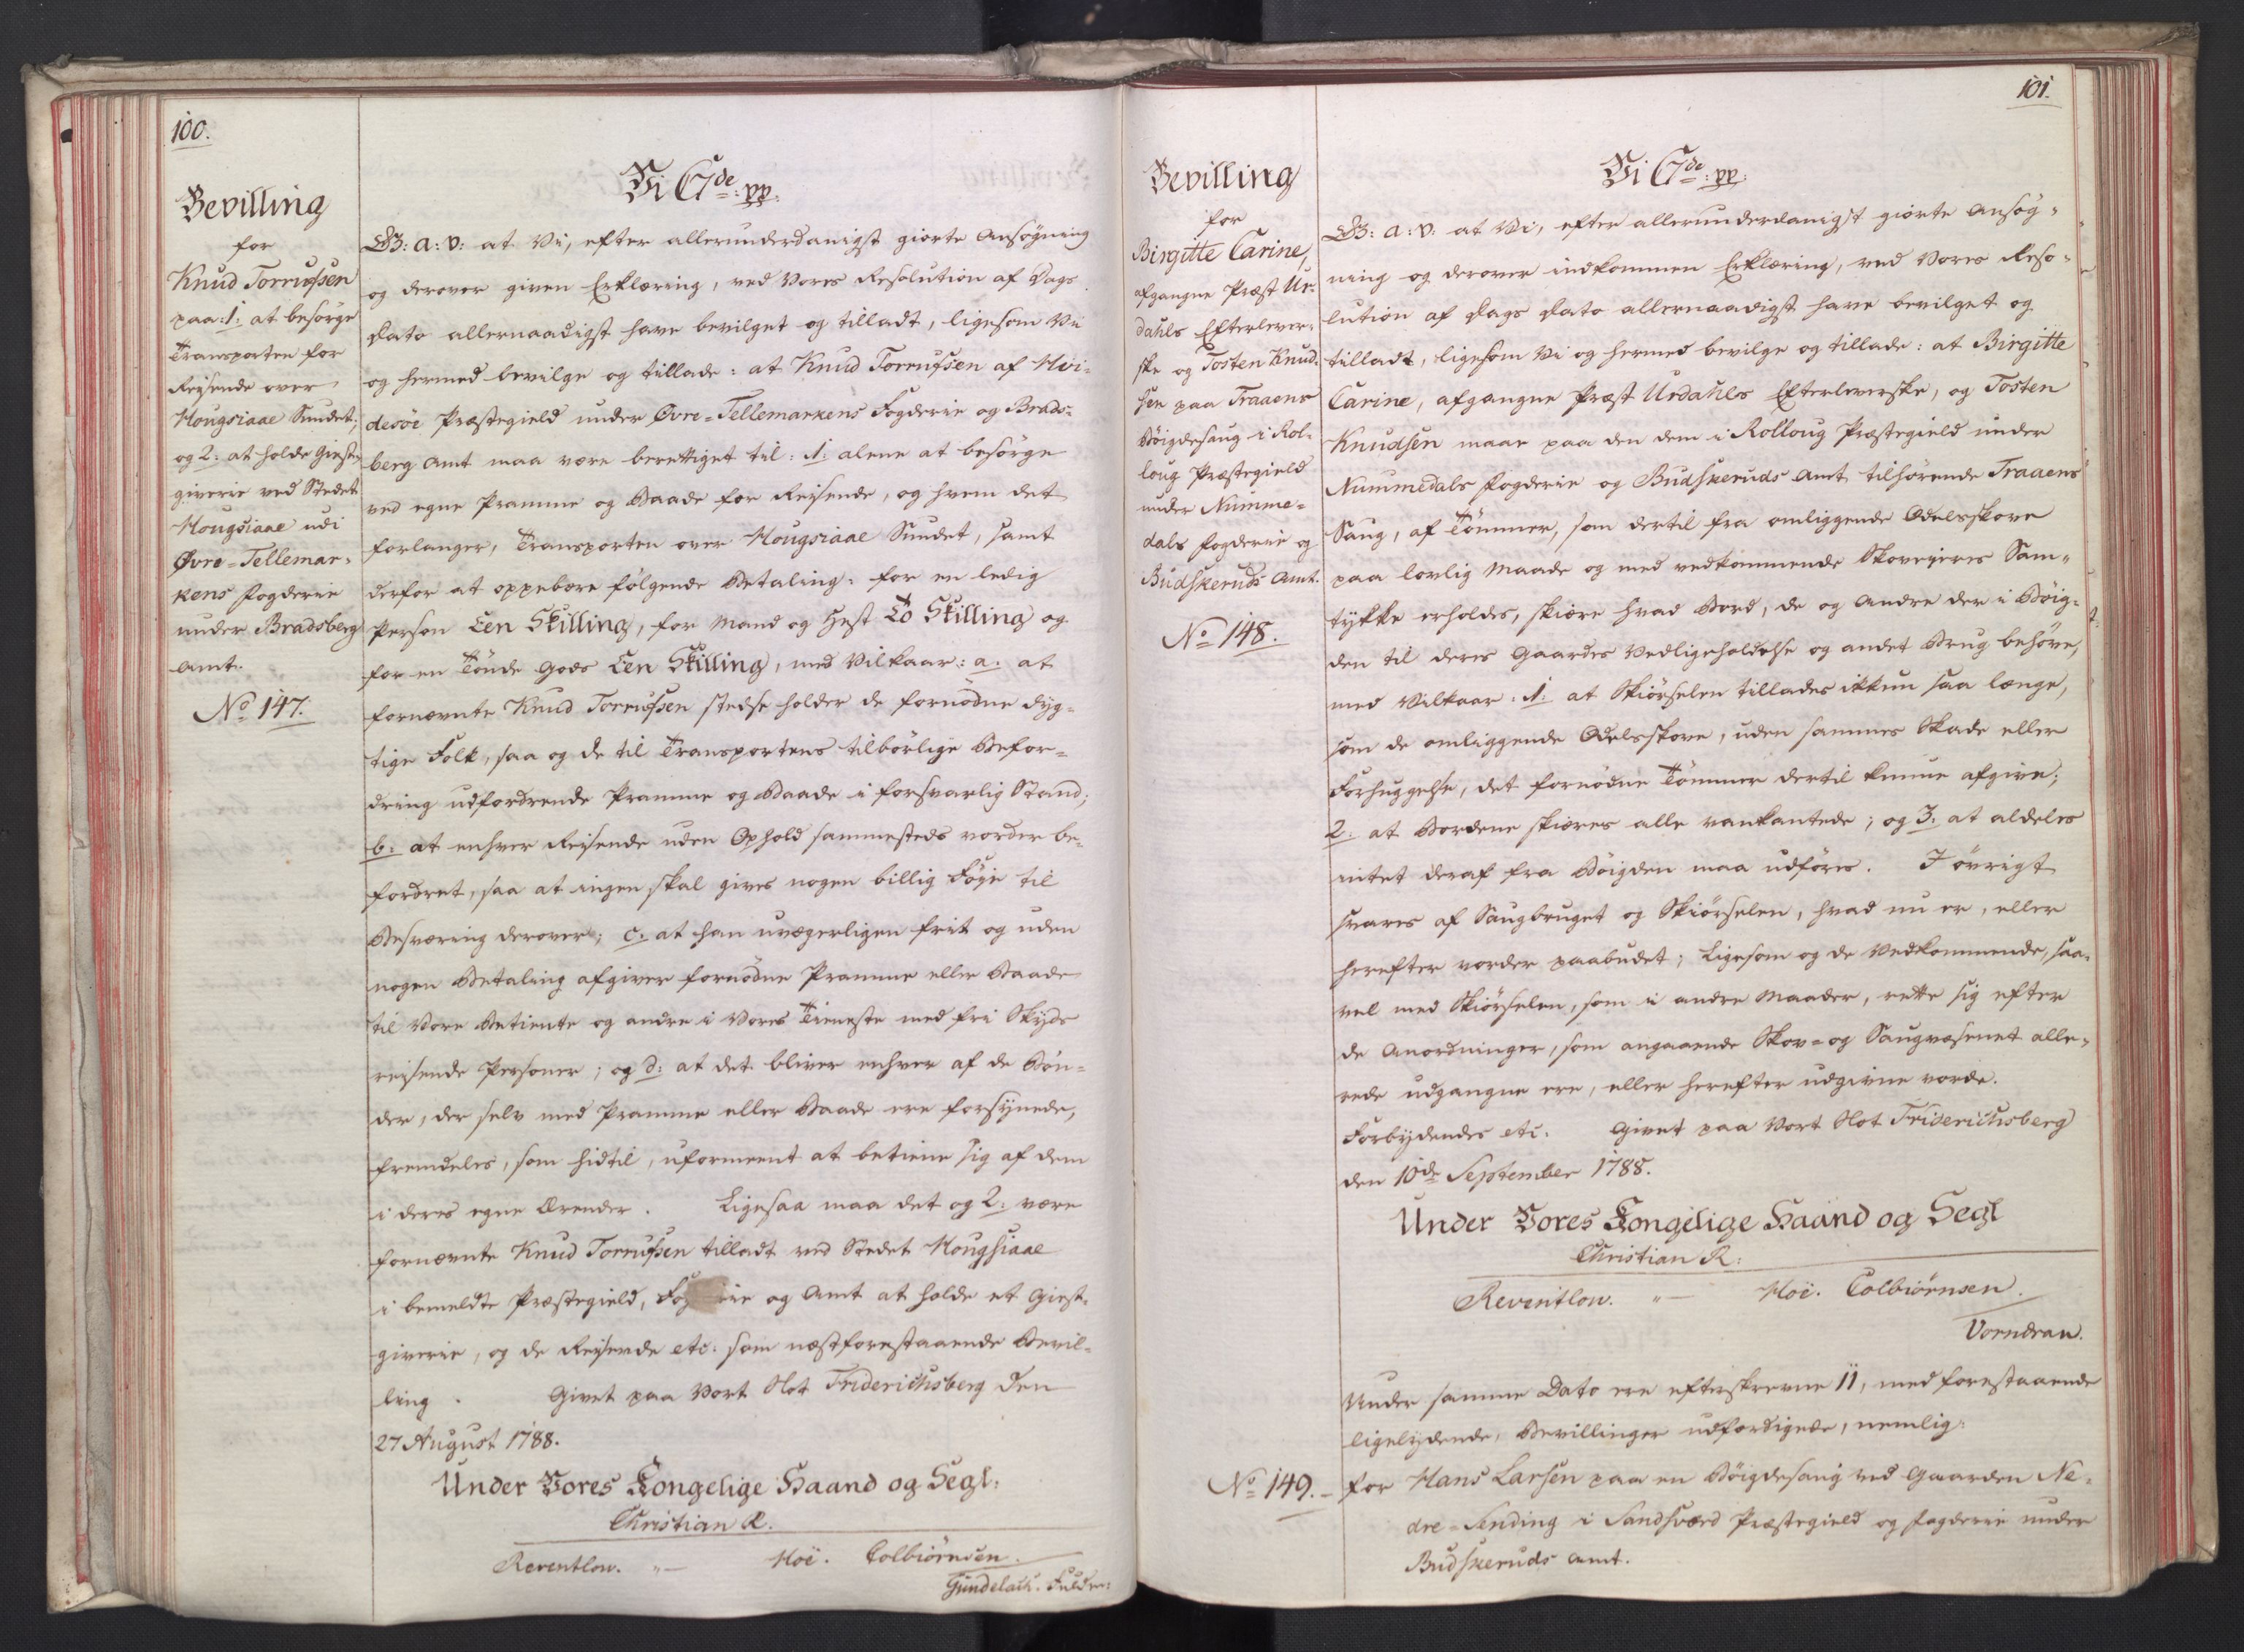 100.
Bevilling
for
Knud Torrussen
paa: 1: at besörge
Transporten for
Reisende over
Hougsiaae Sundet;
og 2: at holde Giest-
giverie ved Stedet
Hougsiaae udi
Øvre-Tellemar-
kens Fogderie
under Bradsberg
Amt.
No 147.
Vi C7de: pp:
G: a: v: at Vi, efter allerunderdanigst giorte Ansøgning
og derover given Erklæring, ved Vores Resolution af Dags
Dato allernaadigst have bevilget og tilladt, ligesom Vi
og hermed bevilge og tillade: at Knud Torrussen af Hvi-
desöe Præstegield under Øvre-Tellemarkens Fogderie og Brads-
berg Amt maa være berettiget til: 1: alene at besörge
ved egne Pramme og Baade for Reisende, og hvem det
forlanger, Transporten over Hougsiaae Sundet, samt
derfor at oppebære fölgende Betaling: for en ledig
Person Een Skilling, for Mand og Hest To Skilling og
for en Tönde Gods Een Skilling, med Vilkaar: a. at
fornævnte Knud Torrussen stedse holder de fornödne dyg-
tige Folk, saa og de til Transportens tilbörlige Befor-
dring udfordrende Pramme og Baade i forsvarlig Stand;
b: at enhver Reisende uden Ophold sammesteds vorder be-
fordret, saa at ingen skal gives nogen billig Föie til
Besværing derover; c. at han uvægerligen frit og uden
nogen Betaling afgiver fornödne Pramme eller Baade
til Vore Betiente og andre i Vores Tieneste med fri Skyds
reisende Personer; og d: at det bliver enhver af de Bön-
der, der selv med Pramme eller Baade ere forsynede,
fremdeles, som hidtil, uformeent at betiene sig af dem
i deres egne Ærender. Ligesaa maa det og 2: være
fornævnte Knud Torrussen tilladt ved Stedet Hougsiaae
i bemeldte Præstegield, Fog rie og Amt at holde et Giest-
giverie, og de Reisende etc: som næstforestaaende Bevil-
ling. Givet paa Vort Slot Friderichsberg den
27 August 1788.
Under Vores Kongelige Haand og Segl:
Christian R.
Reventlow. "— Hoë. Colbiörnsen.
Gundelach. Fulden:
101.
Bevilling
for
Birgitte Carine,
afgangne Præst Ur-
dahls Efterlever-
ske og Tosten Knud-
sen paa Traaens
Böigdesaug i Rol-
loug Præstegield
under Numme-
dals Fogderie og
Budskeruds Amt.
No 148.
Vi C7de: pp:
G: a: v: at Vi, efter allerunderdanigst giorte Ansög-
ning og derover indkommen Erklæring, ved Vores Reso-
lution af Dags Dato allernaadigst have bevilget og
tilladt, ligesom Vi og hermed bevilge og tillade: at Birgitte
Carine, afgangne Præst Urdahls Efterleverske, og Tosten
Knudsen maae paa den dem i Rolloug Præstegield under
Nummedals Fogderie og Budskeruds Amt tilhörende Traaens
Saug, af Tömmer, som dertil fra omliggende Odelsskove
paa lovlig Maade og med vedkommende Skoveieres Sam-
tykke erholdes, skiære hvad Bord, de og Andre der i Böig-
den til deres Gaardes Vedligeholdelse og andet Brug behöve,
med Vilkaar: 1: at Skiörselen tillades ikkun saa længe,
som de omliggende Odelsskove, uden sammes Skade eller
Forhuggelse, det fornödne Tömmer dertil kunne afgive;
2: at Bordene skiæres alle vankantede; og 3. at aldeles
intet deraf fra Böigden maa udföres. I övrigt
svares af Saugbruget og Skiörselen, hvad nu er, eller
herefter vorder paabudet; Ligesom og de Vedkommende, saa-
vel med Skiörselen, som i andre Maader, rette sig efter
de Anordninger, som angaaende Skov- og Saugvæsenet alle-
rede udgangne ere, eller herefter udgivne vorde.
Forbydendes etc. Givet paa Vort Slot Friderichsberg
den 10de September 1788.
Under Vores Kongelige Haand og Segl
Christian R:
Reventlow. "— Hoë. Colbiörnsen.
Vorndran.
Under samme Dato ere efterskrevne 11, med forestaaende
ligelydende, Bevillinger udfærdigede, nemlig:
No 149. — for Hans Larsen paa en Böigdesaug ved Gaarden Ne-
dre-Sending i Sandsværd Præstegield og Fogderie under
Budskeruds Amt.